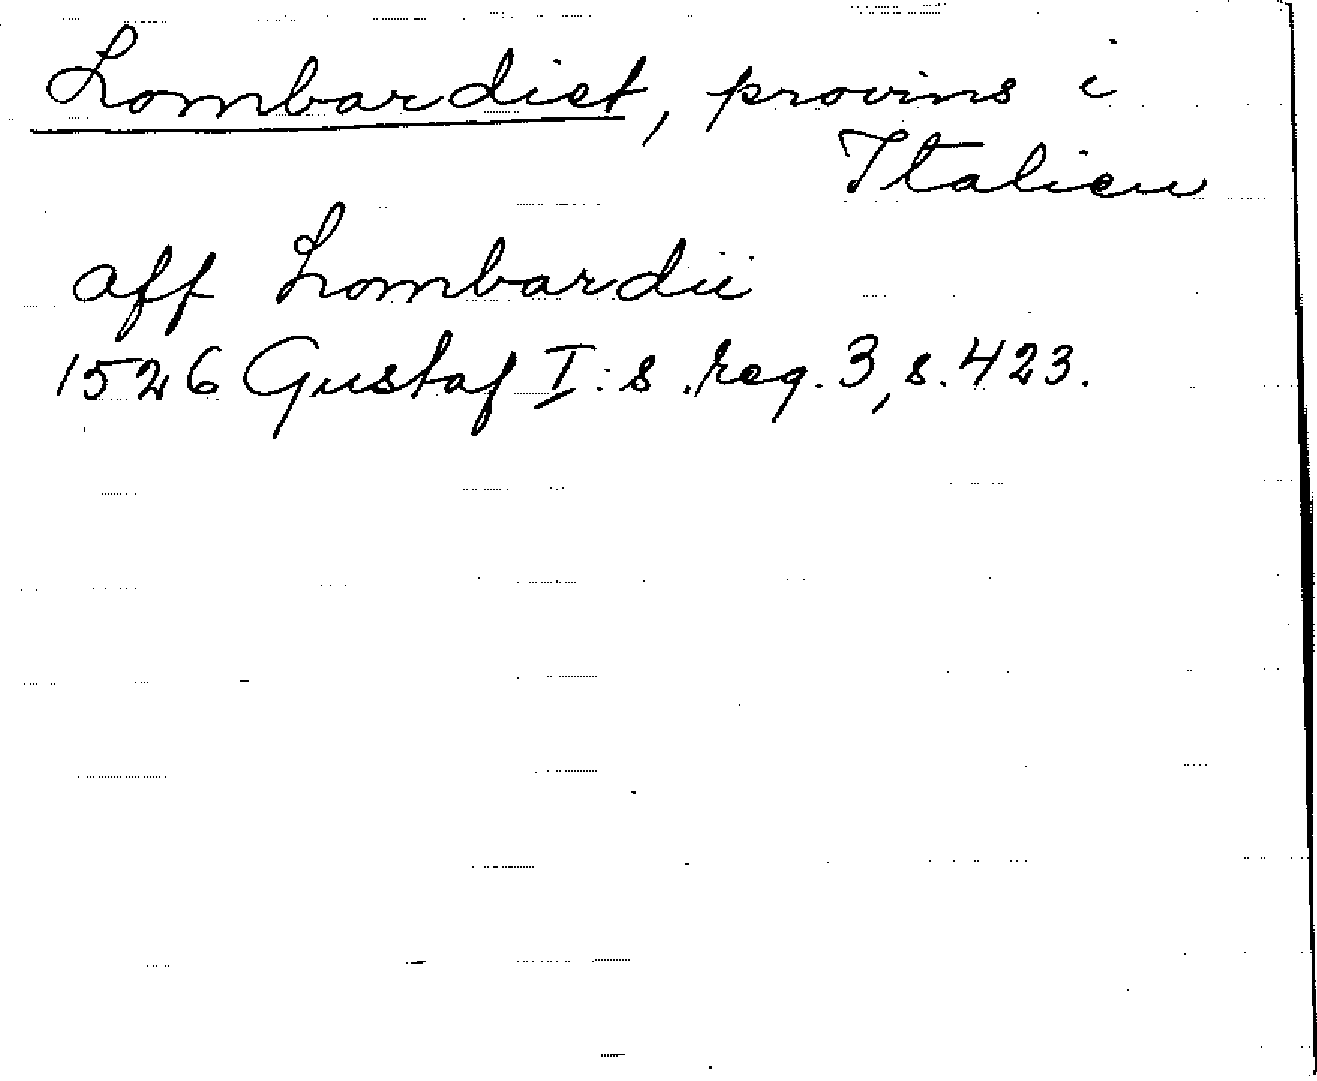 Lombardiet, provins i
Italien
aff Lombardii
1526 Gustaf I:s reg. 3, s. 423.